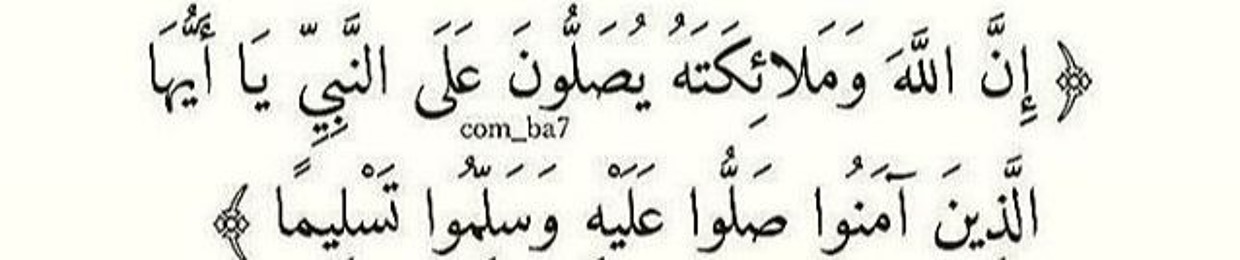 ﴿ إِنَّ اللَّهَ وَمَلَائِكَتَهُ يُصَلُّونَ عَلَى النَّبِيِّ يَا أَيُّهَا
com_ba7
الَّذِينَ آمَنُوا صَلُّوا عَلَيْهِ وَسَلِّمُوا تَسْلِيمًا ﴾